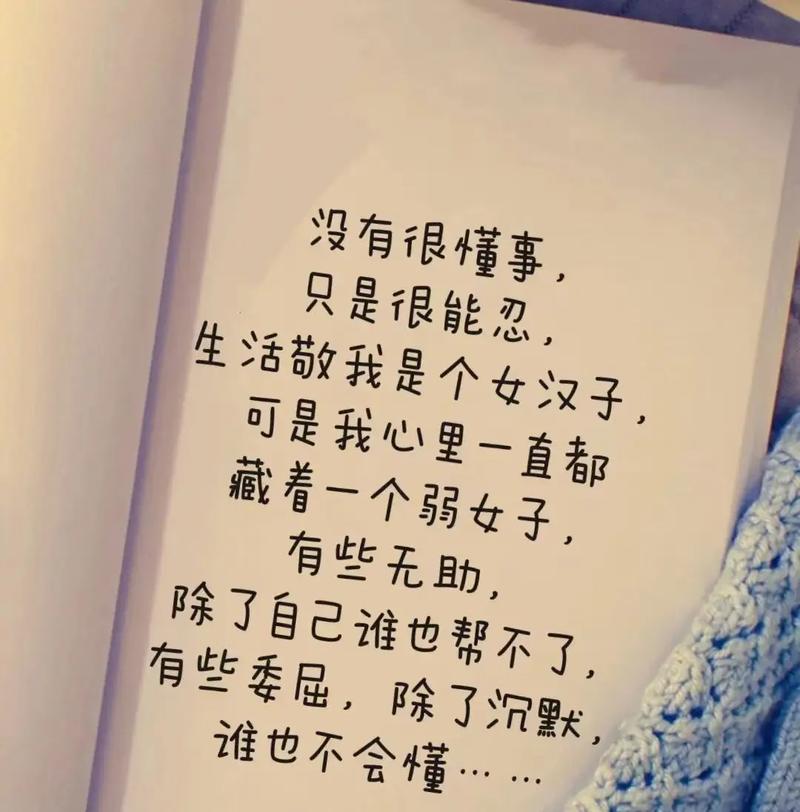 没有很懂事，
只是很能忍，
生活敬我是个女汉子，
可是我心里一直都
藏着一个弱女子，
有些无助，
除了自己谁也帮不了，
有些委屈，除了沉默，
谁也不会懂……